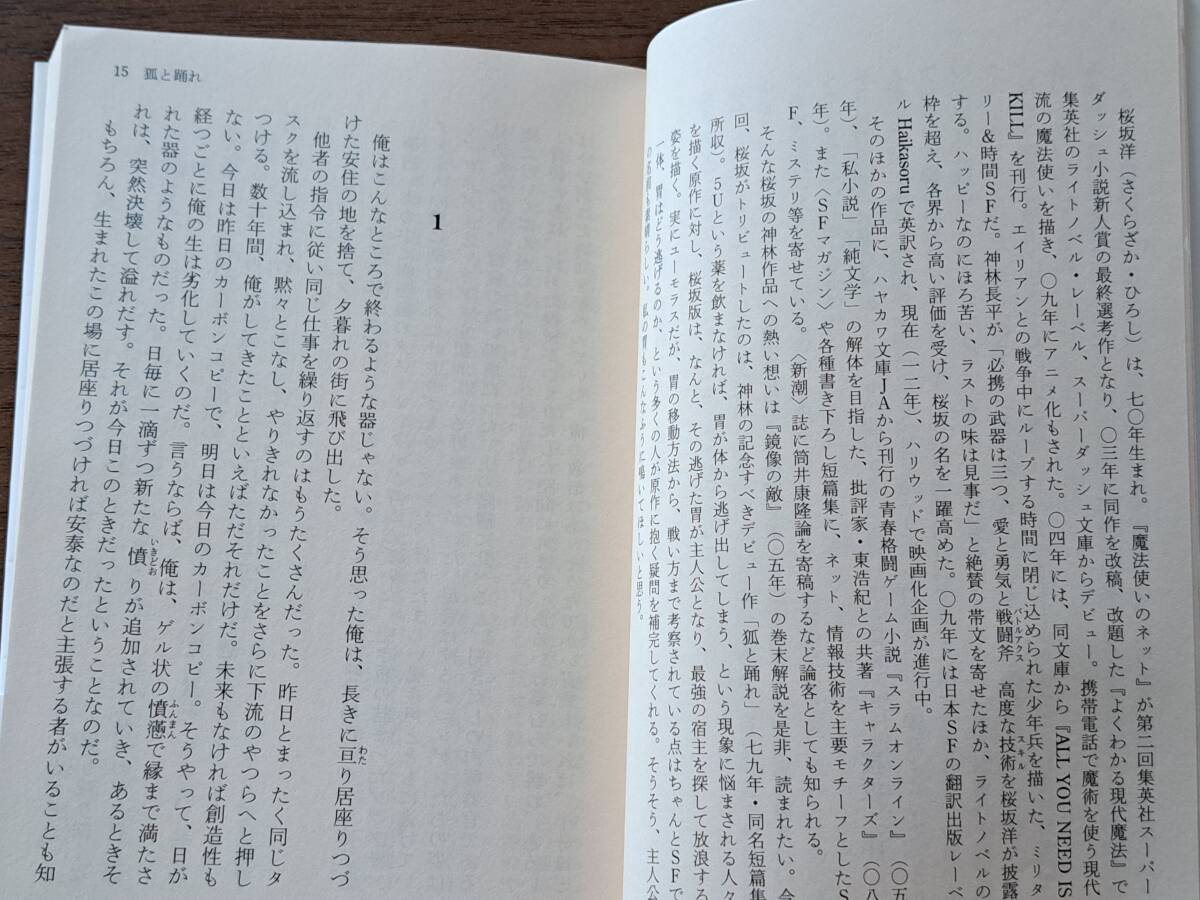 桜坂洋（さくらざか・ひろし）は、七〇年生まれ。『魔法使いのネット』が第二回集英社スーパー
ダッシュ小説新人賞の最終選考作となり、〇三年に同作を改稿、改題した『よくわかる現代魔法』で
集英社のライトノベル・レーベル、スーパーダッシュ文庫からデビュー。携帯電話で魔術を使う現代
流の魔法使いを描き、〇九年にアニメ化もされた。〇四年には、同文庫から『ALL YOU NEED IS
KILL』を刊行。エイリアンとの戦争中にループする時間に閉じ込められた少年兵を描いた、ミリタ
リー&時間SFだ。神林長平が「必携の武器は三つ、愛と勇気と戦闘斧 高度な技術を桜坂洋が披露
する。ハッピーなのにほろ苦い、ラストの味は見事だ」と絶賛の帯文を寄せたほか、ライトノベルの
枠を超え、各界から高い評価を受け、桜坂の名を一躍高めた。〇九年には日本SFの翻訳出版レーベ
ル Haikasoru で英訳され、現在（一二年）、ハリウッドで映画化企画が進行中。
そのほかの作品に、ハヤカワ文庫JAから刊行の青春格闘ゲーム小説『スラムオンライン』（〇五
年）、「私小説」「純文学」の解体を目指した、批評家・東浩紀との共著『キャラクターズ』（〇八
年）。また〈SFマガジン〉や各種書き下ろし短篇集に、ネット、情報技術を主要モチーフとしたS
F、ミステリ等を寄せている。〈新潮〉誌に筒井康隆論を寄稿するなど論客としても知られる。
そんな桜坂の神林作品への熱い想いは『鏡像の敵』（〇五年）の巻末解説を是非、読まれたい。今
回、桜坂がトリビュートしたのは、神林の記念すべきデビュー作「狐と踊れ」（七九年・同名短篇集
所収）。5Uという薬を飲まなければ、胃が体から逃げ出してしまう、という現象に悩まされる人々
を描く原作に対し、桜坂版は、なんと、その逃げた胃が主人公となり、最強の宿主を探して放浪する
姿を描く。実にユーモラスだが、胃の移動方法から、戦い方まで考察されている点はちゃんとSFで
一体、胃はどう逃げるのか、という多くの人が原作に抱く疑問を補完してくれる。そうそう、主人公
の名前も素晴らしい。私の胃もこんなふうに鳴いてほしいと思う。
15 狐と踊れ
1
俺はこんなところで終わるような器じゃない。そう思った俺は、長きに亘り居座りつづ
けた安住の地を捨て、夕暮れの街に飛び出した。
他者の指令に従い同じ仕事を繰り返すのはもうたくさんだった。昨日とまったく同じタ
スクを流し込まれ、黙々とこなし、やりきれなかったことをさらに下流のやつらへと押し
つける。数十年間、俺がしてきたことといえばただそれだけだ。未来もなければ創造性も
ない。今日は昨日のカーボンコピーで、明日は今日のカーボンコピー。そうやって、日が
経つごとに俺の生は劣化していくのだ。言うならば、俺は、ゲル状の憤懣で縁まで満たさ
れた器のようなものだった。日毎に一滴ずつ新たな憤りが追加されていき、あるときそ
れは、突然決壊して溢れだす。それが今日このときだったということなのだ。
もちろん、生まれたこの場に居座りつづければ安泰なのだと主張する者がいることも知